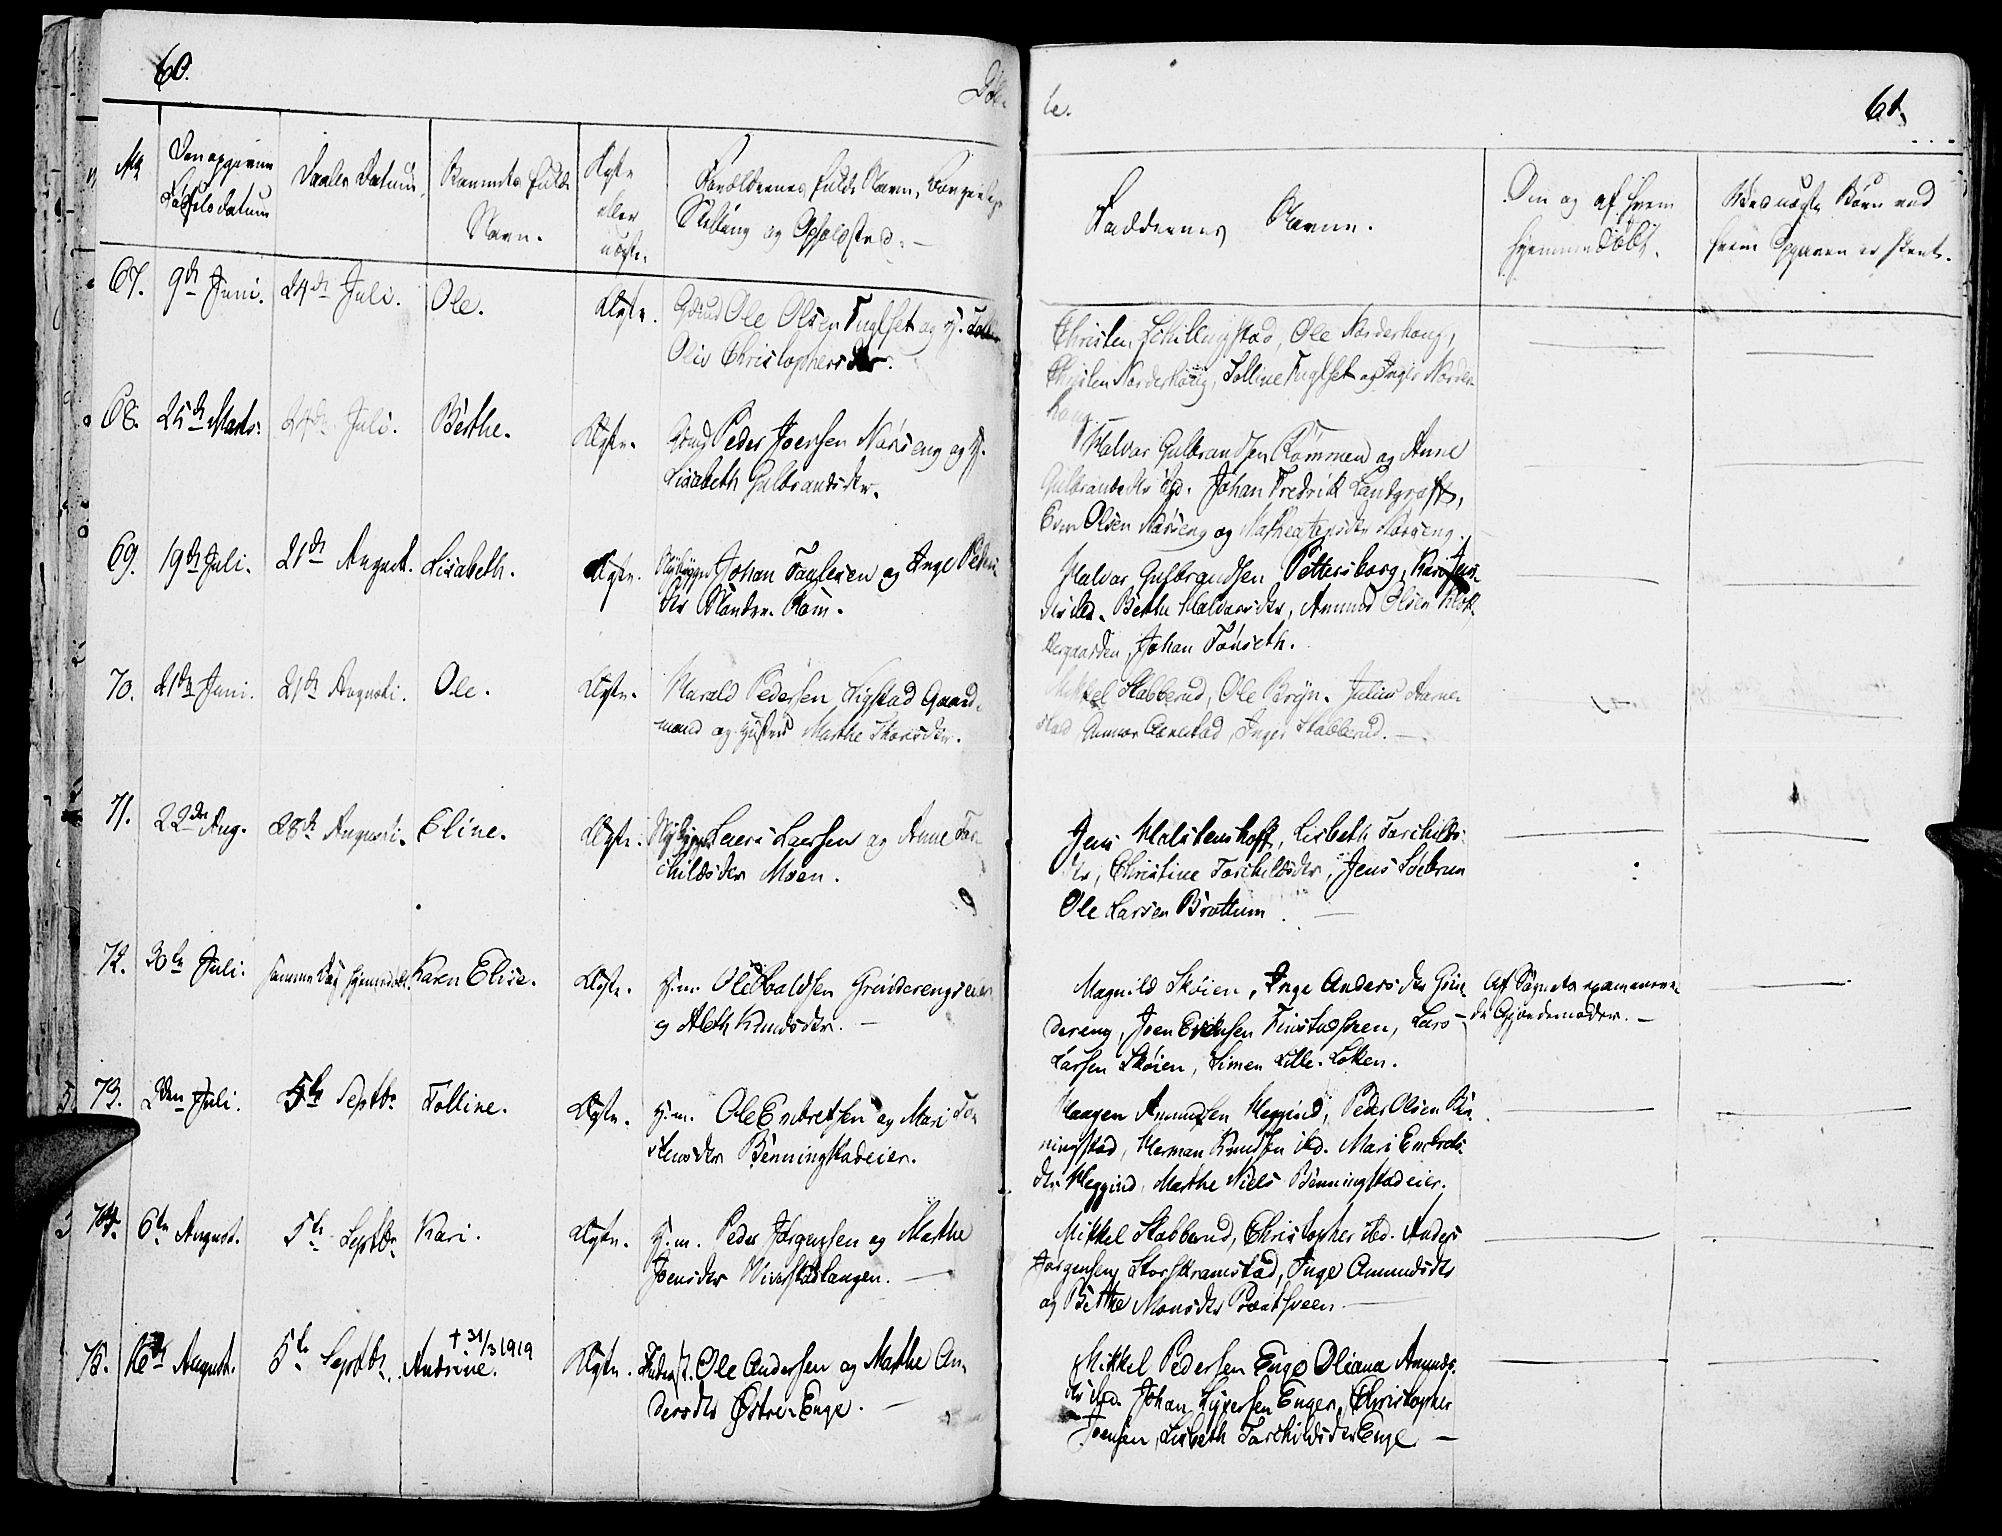 60.
Døb-
te.
61.
No
Den opgivne
Fødselsdatum
Daabs Datum
Barnets fulde
Navn.
Ægte
eller
uægte.
Forældrenes fulde Navn, borgerlige
Stilling og Opholdsted. —
Faddernes Navne.
Om og af hvem
hjemmedøbt.
Hvis uægte Børn end
hvem Opgaven er skeet.
67. 9de Juni. 24de Juli. Ole. Ægte.
Ole Olsen Fuglset og H.
Oliv Christophersdtr.
Christen Schillingstad, Ole Norderhoug,
Christen Norderhoug, Tolline Fuglset og Inger Norder-
houg —
68. 25de Marts. 24de Juli. Berthe. Ægte.
Peder Joensen Narseng og H.
Lisabeth Gulbrandsdtr.
Halvor Gulbrandsen Rømmen og Anne
Gulbrandsdtr ibd. Johan Fredrik Landgraff,
Even Olsen Narseng og Mathea Narseng.
69. 19de Juli. 21de August. Lisabeth. Ægte.
Nybygger Johan Paulsen og Inge Peders-
dtr
Halvor Gulbrandsen Pettersborg, Kari Jens-
dtr ibd. Berthe Halvorsdtr, Amund Olsen Klok-
kergaarden, Johan Tønseth.
70. 21de Juni. 21de Augusti. Ole. Ægte.
Harald Pedersen Vigstad Gaard-
mand og Hustru Marthe Thorsdtr.
Mikkel Stabberud, Ole Bryn. Julius Aarne-
stad, Gunnor Aarnestad, Inger Stabberud. —
71. 22den Aug. 28de Augusti. Eline. Ægte.
Nybygger Laers Laersen og Anne Tor-
childsdtr Moen.
Jens Halstenshoff, Lisbeth Torchilds-
dtr, Christine Torchildsdtr, Jens Løebrun
Ole Larsen Brottum. —
72. 30te Juli. samme Dag hjemmedøbt. Karen Elise. Ægte.
H.m. Ole Iwaldsen Grinderengseier
og Aleth Knudsdtr. —
Magnild Skøien, Inge Andersdtr Grin-
dereng, Joen Evensen Finstadsveen, Lars
Larsen Skøien, Simen Lille-Løken.
Af Sognets examineren-
de Gjordemoder. —
73. 2den Juli. 5te Septbr Tolline. Ægte.
H.m. Ole Endretsen og Mari Tor-
stensdtr Benningstadeier.
Haagen Amundsen Heggind, Peder Olsen Ben-
ningstad, Herman Knudsen ibd. Mari Endrets-
dtr Heggind, Marthe Niels Benningstadeier.
74. 6te August. 5te Septbr Kari. Ægte.
H.m. Peder Jørgensen og Marthe
Joensdtr Wiverstadlangen. —
Mikkel Stabberud, Christopher ibd. Anders
Jørgensen Storskramstad, Inge Amundsdtr
og Berthe Monsdtr Præstsveen —
75. 16de August. 5te Septbr. Andrine. † 31/3 1919 Ægte.
Ole Andersen og Marthe An-
dersdtr Østre-Enge. —
Mikkel Pedersen Enge Oliana Amunds-
dtr ibd. Johan Syversen Enger, Christopher
Joensen, Lisbeth Torchildsdtr Enge —